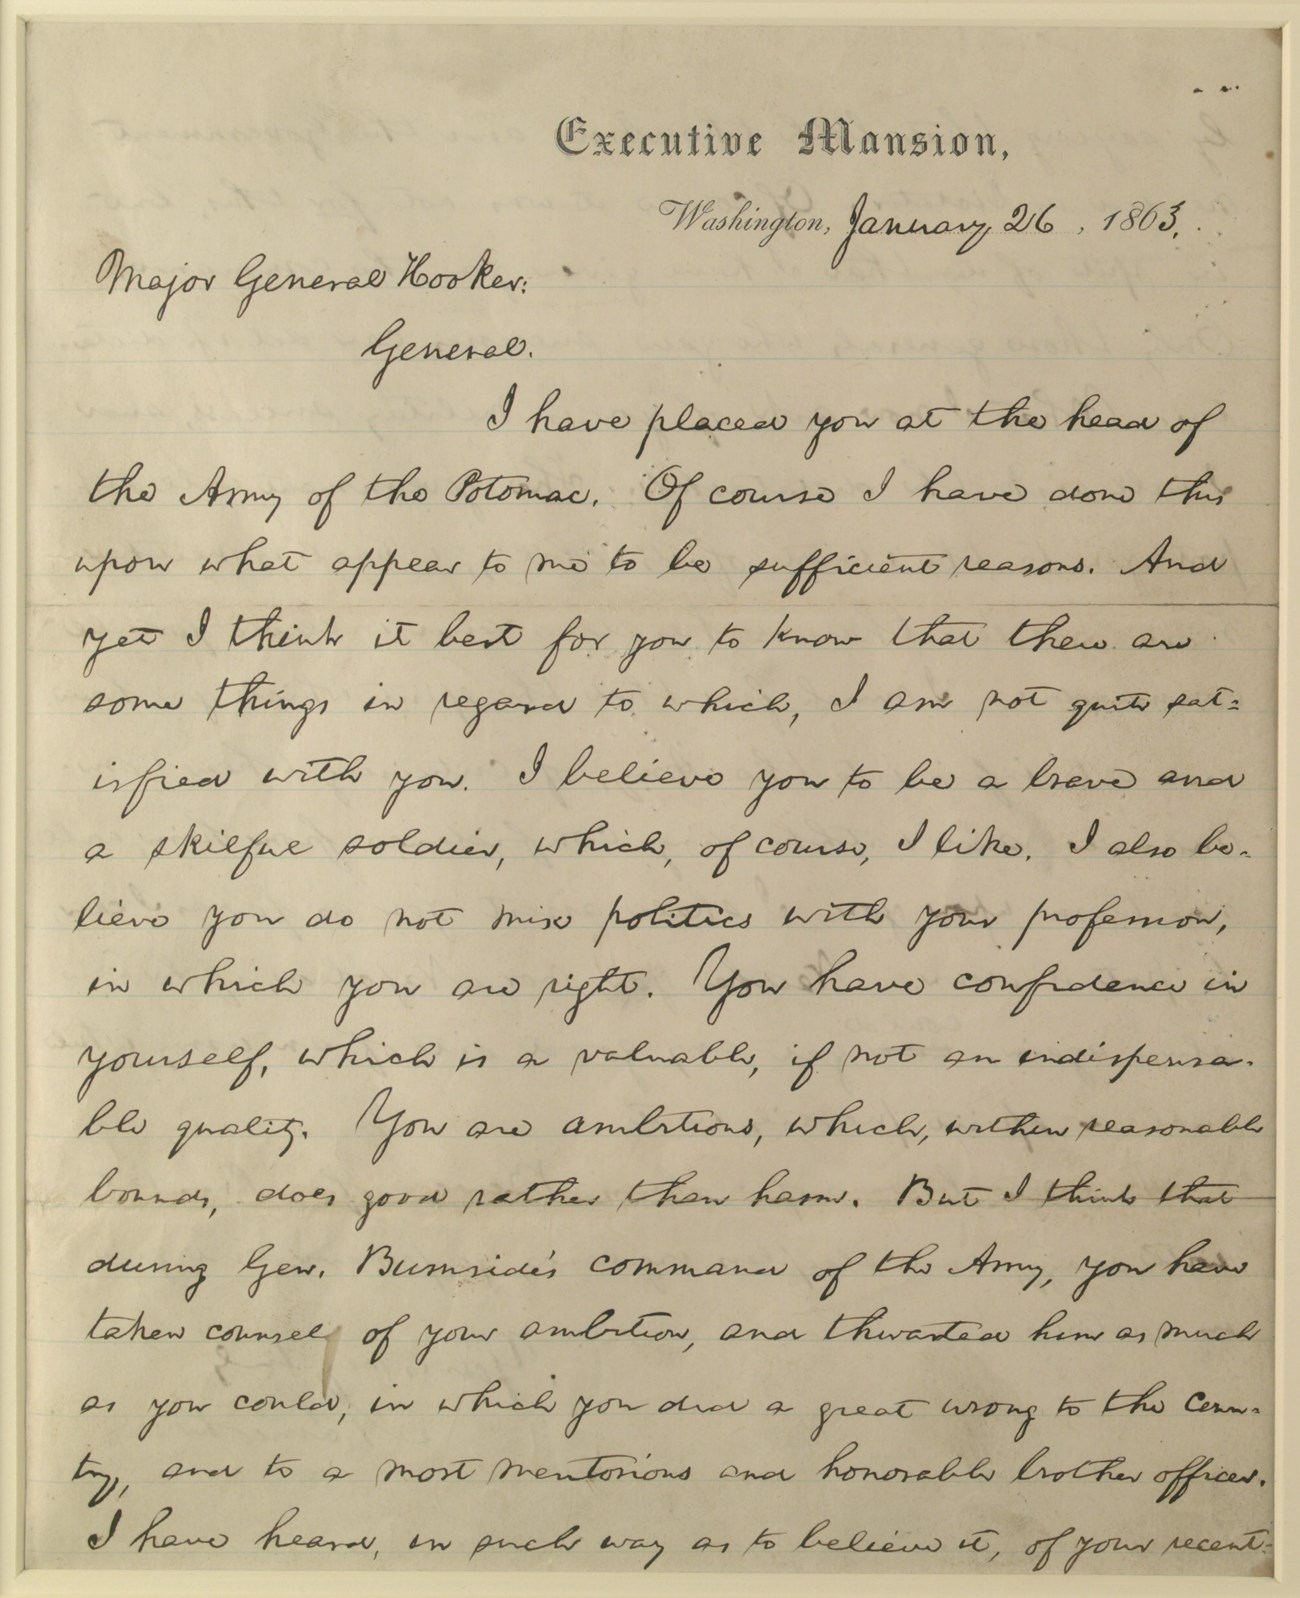 Executive Mansion,
Washington, January 26, 1863.
Major General Hooker:
General.
I have placed you at the head of
the Army of the Potomac. Of course I have done this
upon what appear to me to be sufficient reasons. And
yet I think it best for you to know that there are
some things in regard to which, I am not quite sat=
isfied with you. I believe you to be a brave and
a skilful soldier, which, of course, I like. I also be-
lieve you do not mix politics with your profession,
in which you are right. You have confidence in
yourself, which is a valuable, if not an indispensa-
ble quality. You are ambitious, which, within reasonable
bounds, does good rather than harm. But I think that
during Gen. Burnside's command of the Army, you have
taken counsel of your ambition, and thwarted him as much
as you could, in which you did a great wrong to the coun-
try, and to a most meritorious and honorable brother officer.
I have heard, in such way as to believe it, of your recent-